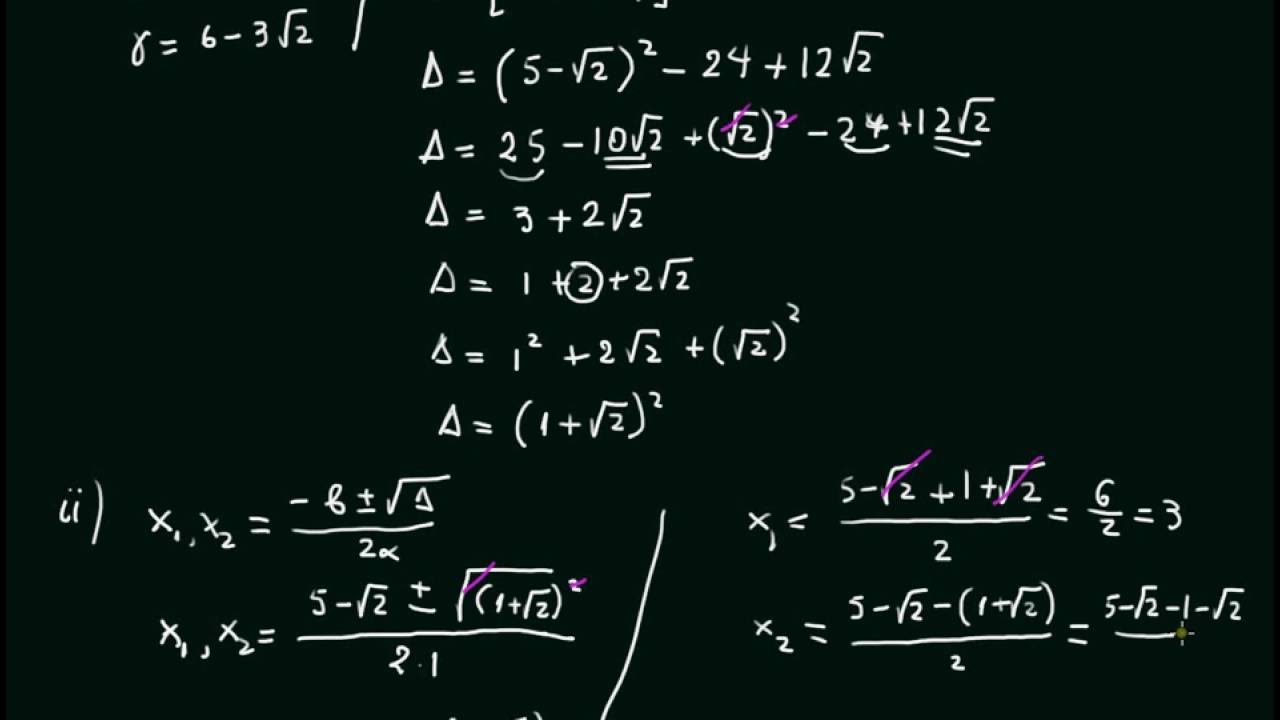 γ = 6 - 3√2
Δ = (5-√2)² - 24 + 12√2
Δ = 25 - 10√2 + (√2)² - 24 + 12√2
Δ = 3 + 2√2
Δ = 1 + 2 + 2√2
Δ = 1² + 2√2 + (√2)²
Δ = (1+√2)²
ii) x₁, x₂ = (-β ± √Δ) / 2α
x₁, x₂ = (5-√2 ± √(1+√2)²) / 2·1
x₁ = (5-√2+1+√2) / 2 = 6/2 = 3
x₂ = (5-√2-(1+√2)) / 2 = 5-√2-1-√2